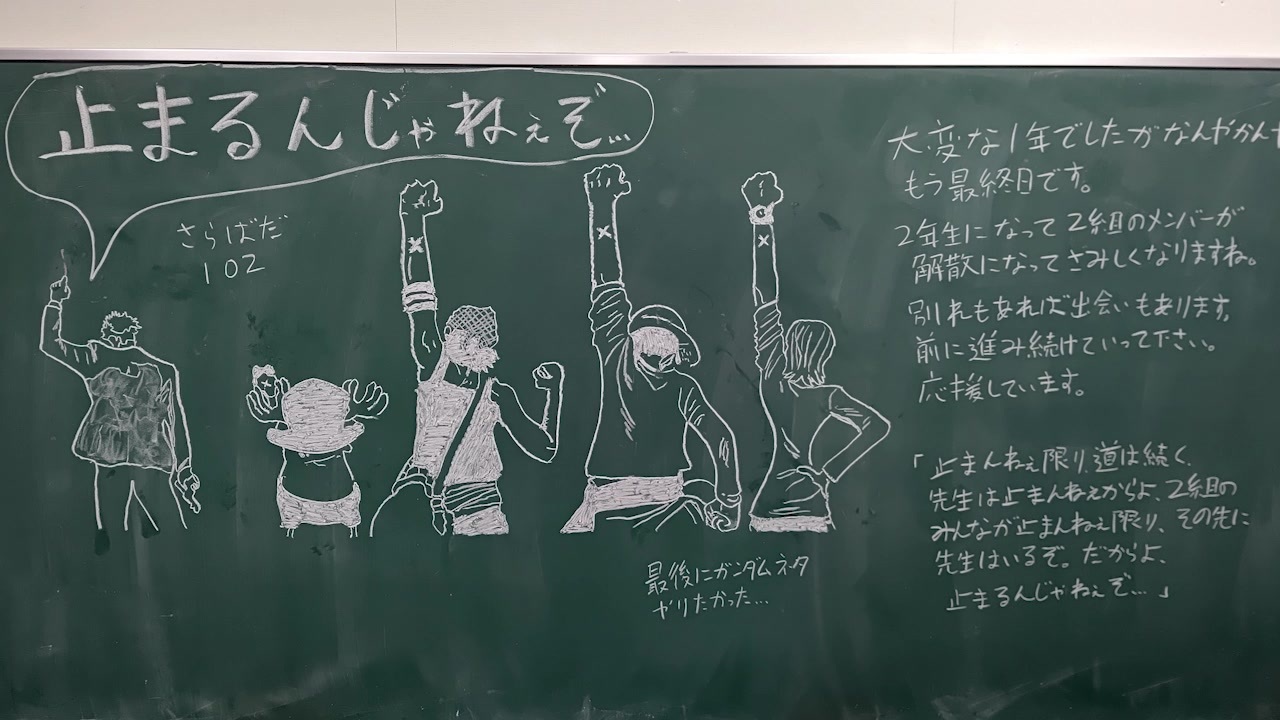 止まるんじゃねぇぞ…
さらばだ
102
大変な1年でしたがなんやかんや
もう最終日です。
2年生になって2組のメンバーが
解散になってさみしくなりますね。
別れもあれば出会いもあります。
前に進み続けていって下さい。
応援しています。
「止まんねぇ限り、道は続く、
先生は止まんねぇからよ、2組の
みんなが止まんねぇ限り、その先に
先生はいるぞ。だからよ、
止まるんじゃねぇぞ…」
最後にガンダムネタ
やりたかった…